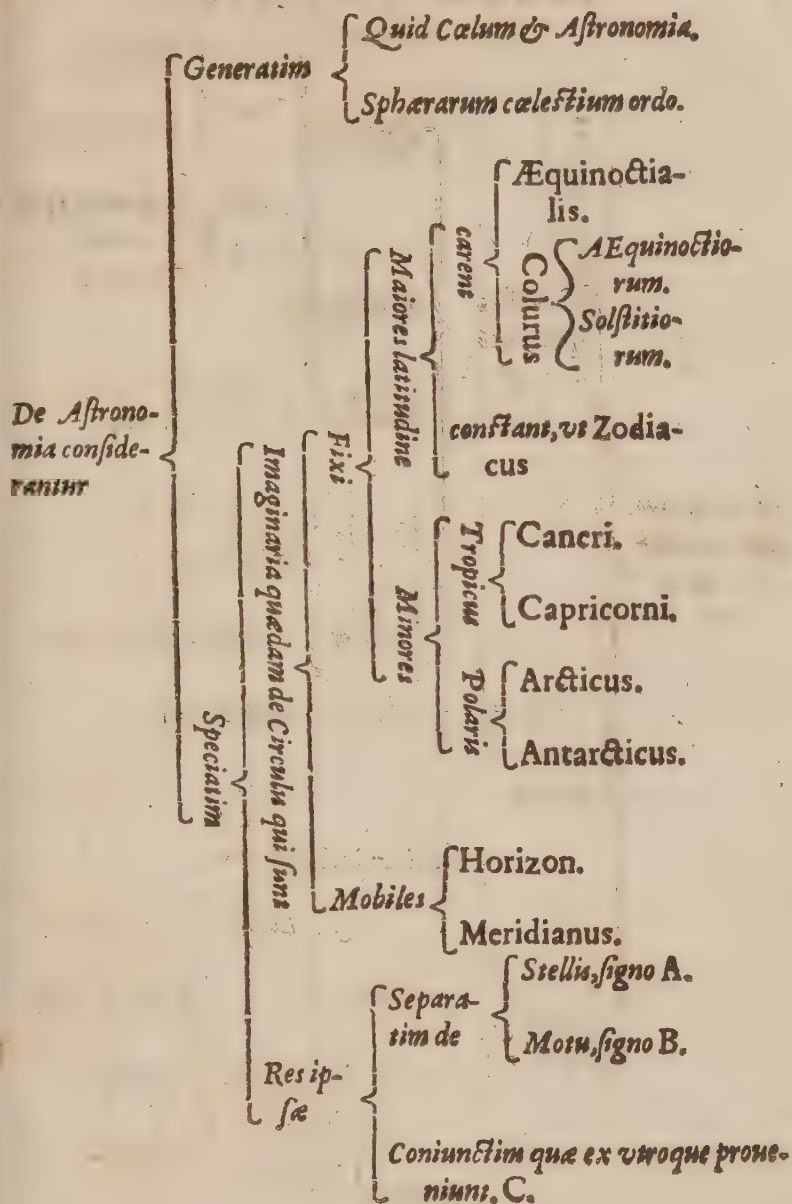 De Aſtrono-
mia conſide-
rantur
Generatim
Quid Cœlum & Aſtronomia.
Sphærarum cœleſtium ordo.
Speciatim
Imaginaria quædam de Circulis qui ſunt
Fixi
Maiores latitudine
carent
Æquinoctia-
lis.
Colurus
AEquinoctio-
rum.
Solſtitio-
rum.
conſtant, vt Zodia-
cus
Minores
Tropicus
Cancri.
Capricorni.
Polaris
Arcticus.
Antarcticus.
Mobiles
Horizon.
Meridianus.
Res ip-
ſæ
Separa-
tim de
Stellis, ſigno A.
Motu, ſigno B.
Coniunctim quæ ex vtroque proue-
niunt. C.